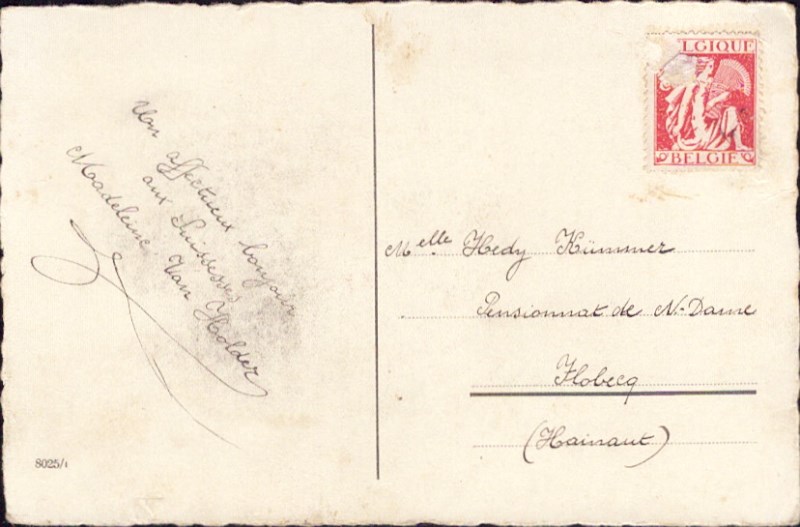 Un affectueux bonjour
aux Suissesses
Madeleine Van Holder
8025/1
LGIQUE
BELGIE
Melle Hedy Kümmer
Pensionnat de N-Dame
Flobecq
(Hainaut)